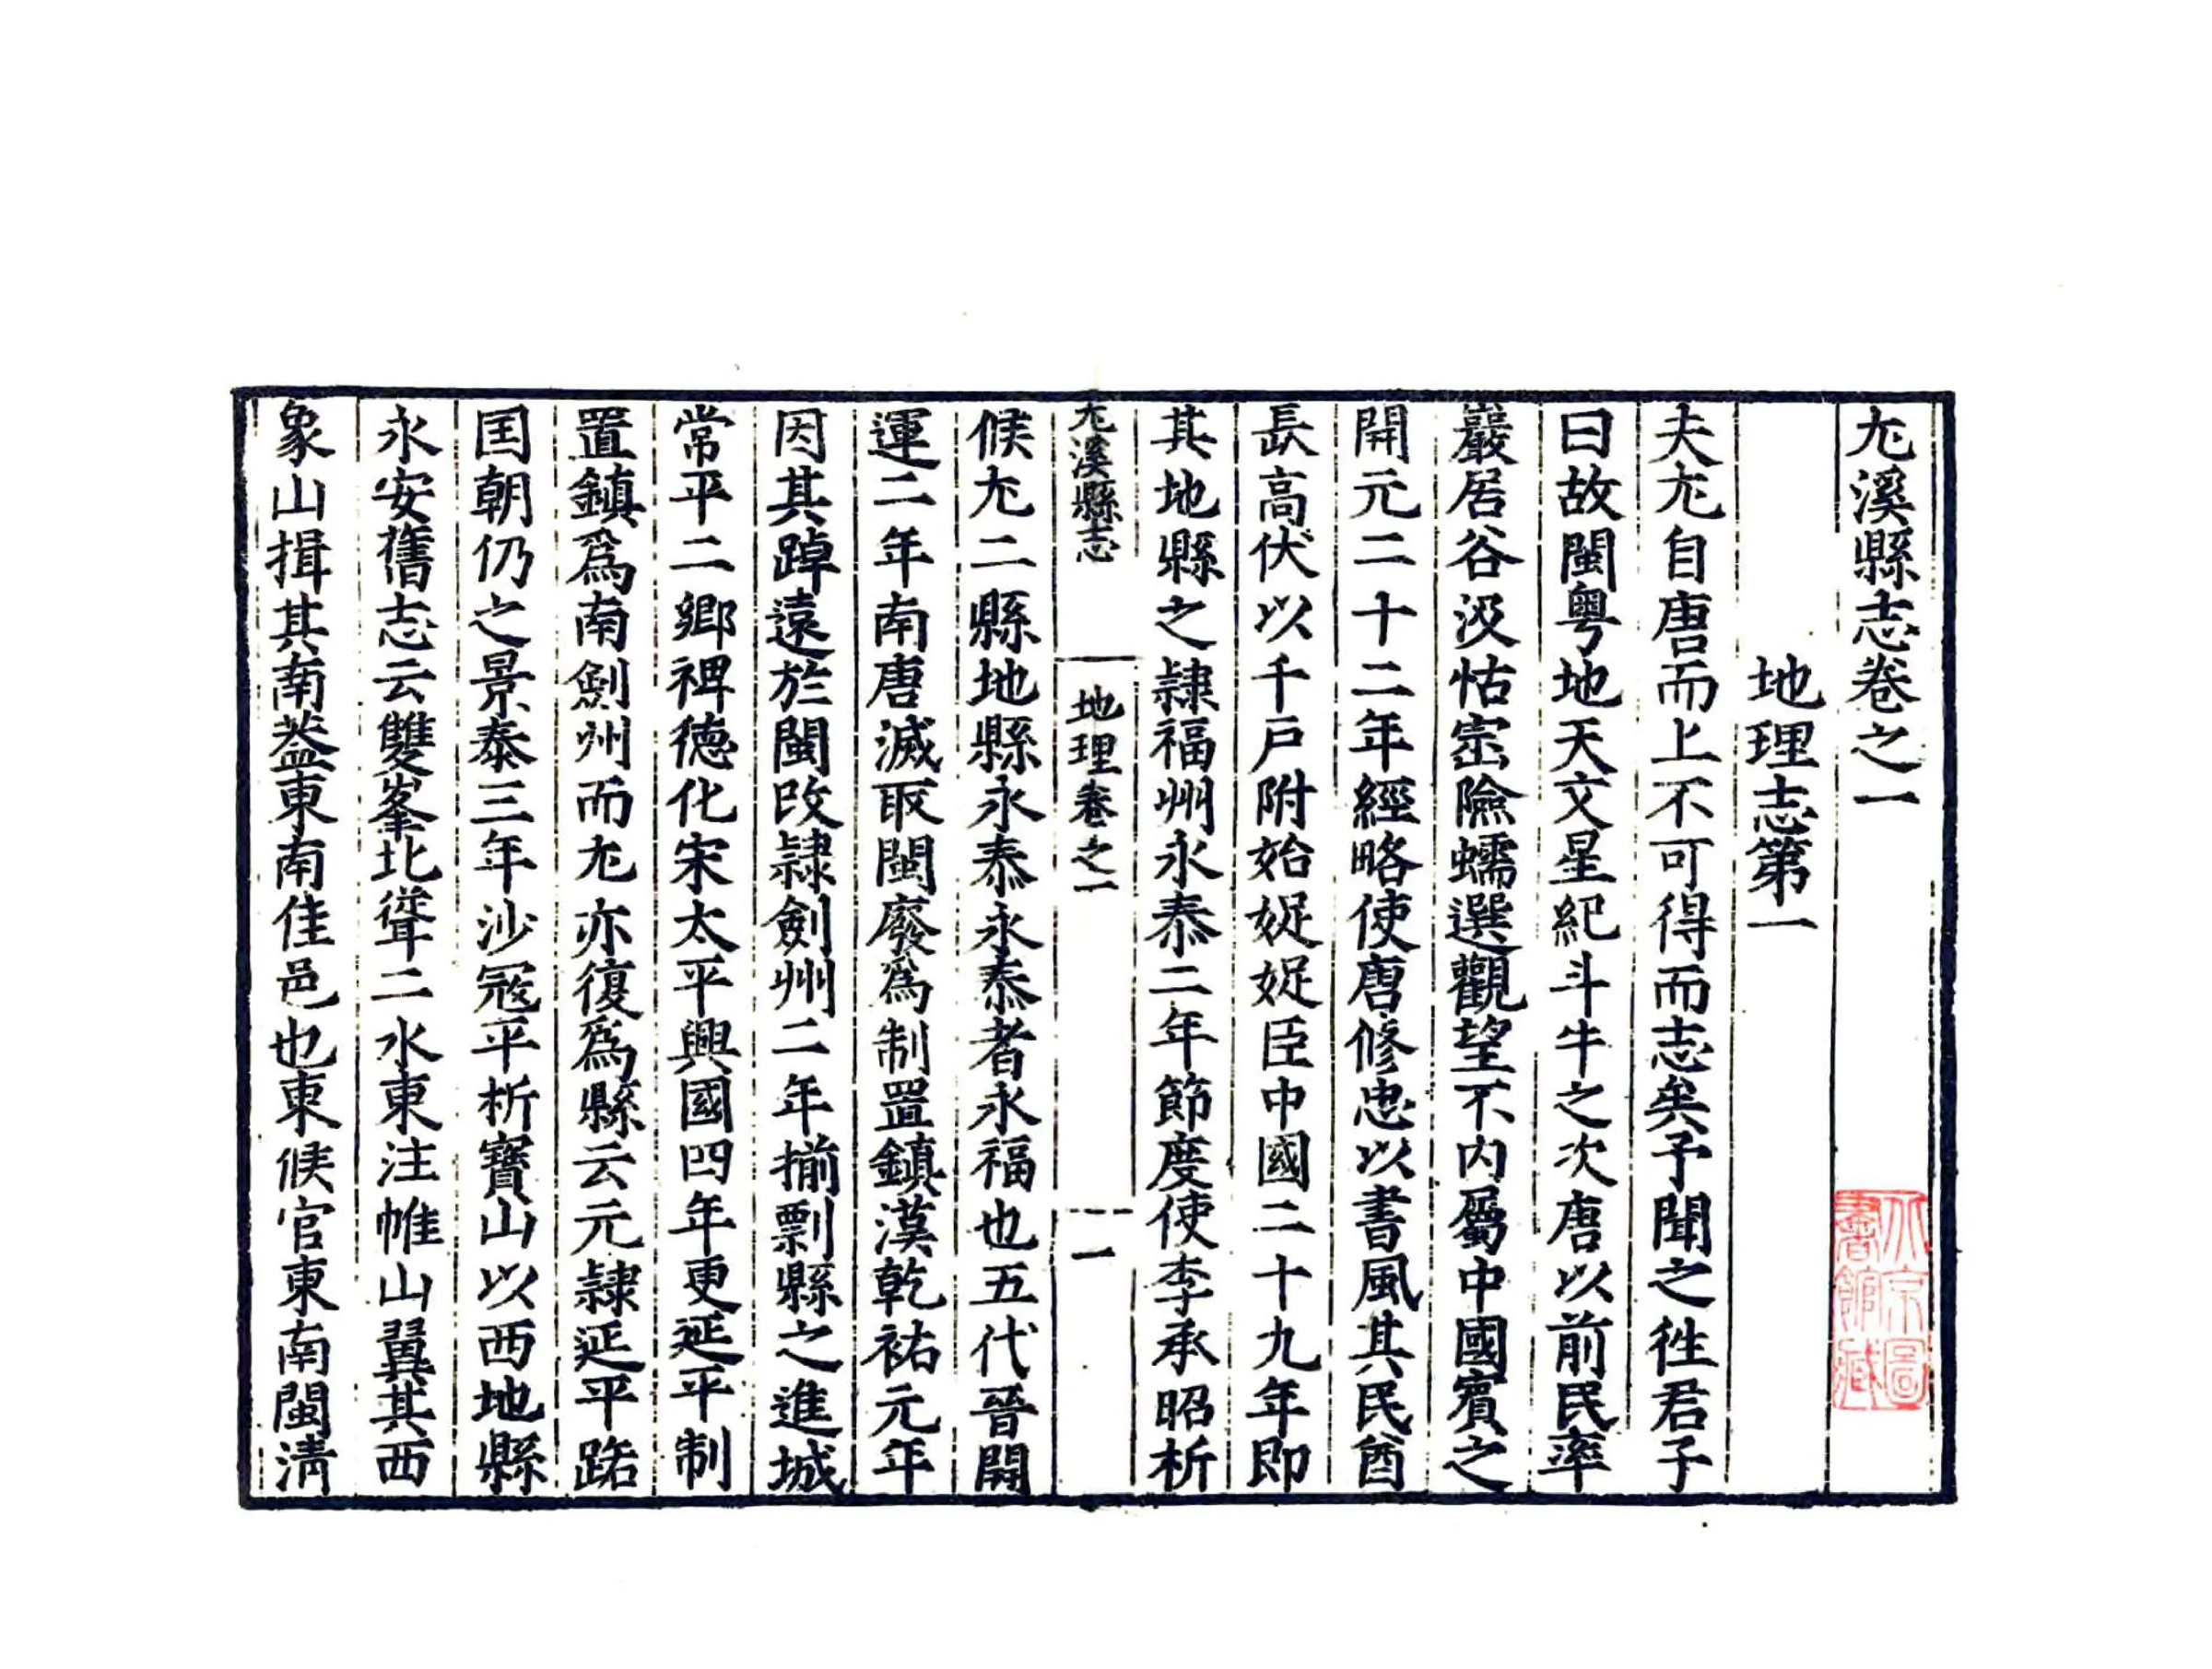 尤溪縣志卷之一
地理志第一
夫尤自唐而上不可得而志矣予聞之徃君子
曰故閩粤地天文星紀斗牛之次唐以前民率
巖居谷汲怙崇險蠕選觀望不内屬中國賓之
開元二十二年經略使唐修忠以書風其民酋
長高伏以千戶附始娖娖臣中國二十九年即
其地縣之隷福州永泰二年節度使李承昭析
尤溪縣志
地理卷之一
一
候尤二縣地縣永泰永泰者永福也五代晉開
運二年南唐滅取閩廢爲制置鎮漢乾祐元年
因其踔遠於閩改隷劍州二年揃剽縣之進城
常平二鄉裨德化宋太平興國四年更延平制
置鎮爲南劍州而尤亦復爲縣云元隷延平路
国朝仍之景泰三年沙冦平析寶山以西地縣
永安舊志云雙峯北聳二水東注帷山翼其西
象山揖其南葢東南佳邑也東候官東南閩清
北京圖書館藏